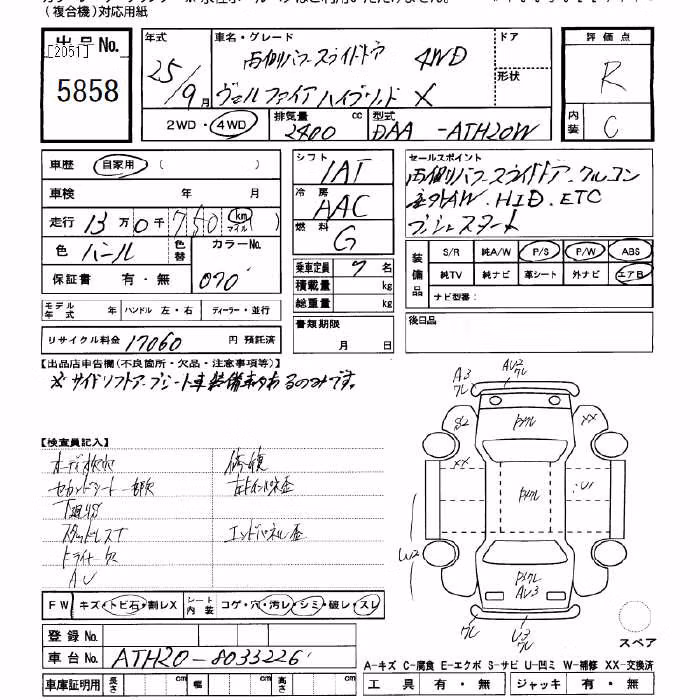 (複合機)対応用紙
出品No.
[2051]
5858
年式
25/9月
車名・グレード
両側パワースライドドア 4WD
ヴェルファイアハイブリッド X
ドア
形状
2WD・4WD
排気量
2400 cc
型式
DAA-ATH20W
評価点
R
内装
C
車歴 自家用 ( )
車検 年 月
走行 13万0千750 km マイル
色 パール
色替
カラーNo.
070
保証書 有・無
モデル年式 年 ハンドル 左・右 ディーラー・並行
リサイクル料金 17060 円 預託済
シフト
IAT
冷房
AAC
燃料
G
乗車定員 7 名
積載量 kg
総重量 kg
書類期限
月 日
セールスポイント
両側パワースライドドア.クルコン
AW. HID. ETC
プッシュスタート
装備品
S/R 純A/W P/S P/W ABS
純TV 純ナビ 革シート 外ナビ エアB
ナビ型番:
後日品
【出品店申告欄(不良箇所・欠品・注意事項等)】
【検査員記入】
修復
セカンドシート一部欠
スタッドレスT
エンドパネル歪
AV
A3
AU2
S2
XX
XX
U1
W2
AU3
U3
FW キズ・トビ石・割レX
シート内装 コゲ・穴・汚レ・シミ・破レ・スレ
スペア
登録No.
車台No. ATH20-8033226
車庫証明用 長さ cm 幅 cm 高さ cm
A-キズ C-腐食 E-エクボ S-サビ U-凹ミ W-補修 XX-交換済
工具 有・無 ジャッキ 有・無